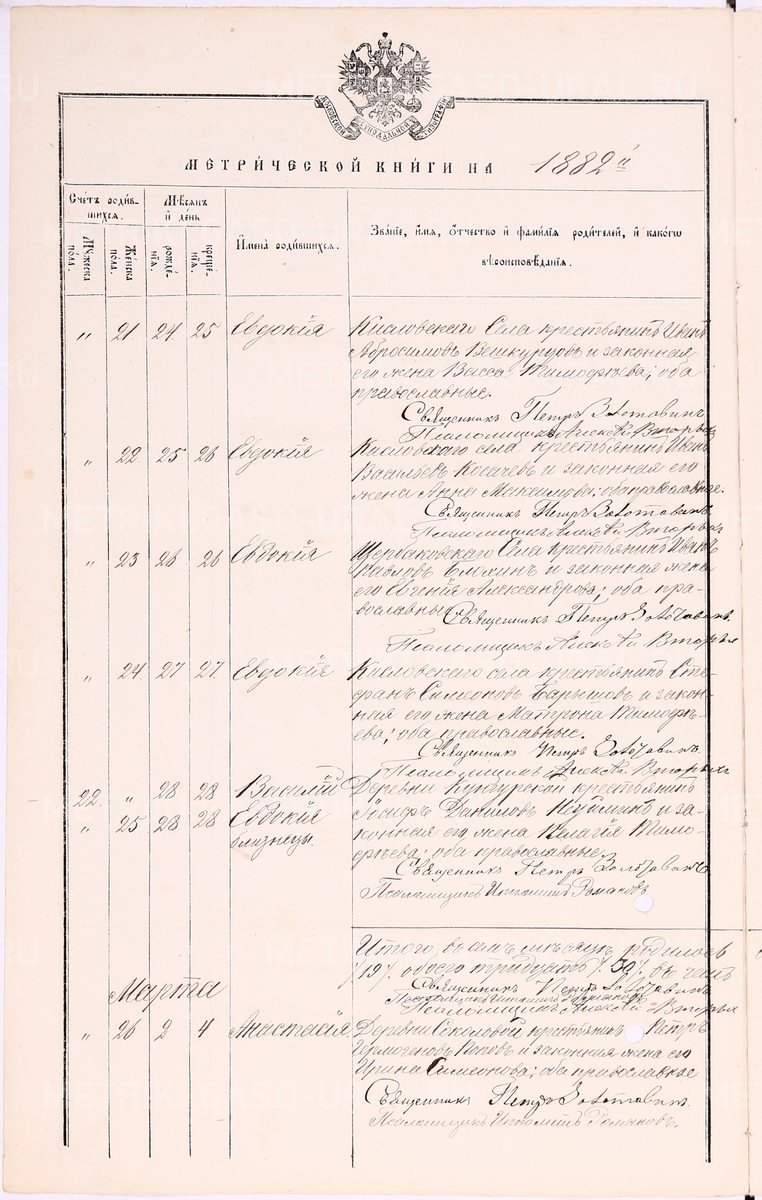 МЕТРИ́ЧЕСКОЙ КНИ́ГИ НА 1882 й
Счетъ родив-
шихся.
Мѣсяцъ
и день
Имена родившихся.
Званіе, имя, отчество и фамилія родителей, и какого
вѣроисповѣданія.
Мужеска
пола.
Женска
пола.
рожде-
нія.
креще-
нія.
" 21 24 25 Евдокія Кисловскаго Села крестьянинъ Иванъ
Абросимовъ Вешкурцовъ и законная
его жена Васса Тимофѣева; оба
православные.
Священникъ Петръ Золотавинъ
Псаломщикъ Алексѣй Вторыхъ
" 22 25 26 Евдокія Кисловскаго села крестьянинъ Иванъ
Васильевъ Косачевъ и законная его
жена Анна Максимова; оба православные.
Священникъ Петръ Золотавинъ
Псаломщикъ Алексѣй Вторыхъ
" 23 26 26 Евдокія Щербаковскаго Села крестьянинъ Иванъ
Павловъ Блохинъ и законная жена
его Евгенія Александрова; оба пра-
вославные
Священникъ Петръ Золотавинъ.
Псаломщикъ Алексѣй Вторыхъ
" 24 27 27 Евдокія Кисловскаго села крестьянинъ Сте-
фанъ Симеоновъ Барышовъ и закон-
ная его жена Матрона Тимофѣ-
ева; оба православные.
Священникъ Петръ Золотавинъ
Псаломщикъ Алексѣй Вторыхъ
22 " 28 28 Василій Деревни крестьянинъ
" 25 28 28 Евдокія Іосифъ Даниловъ и за-
близнецы. конная его жена Пелагія Тимо-
фѣева; оба православные
Священникъ Петръ Золотавинъ
Псаломщикъ Романовъ
Итого въ семъ мѣсяцѣ родилось
/19/. обоего тридцать
Священникъ Петръ Золотавинъ
Псаломщикъ Романовъ
Псаломщикъ Алексѣй Вторыхъ
Марта
" 26 2 4 Анастасія. Деревни Соколовой крестьянинъ Петръ
Гермогеновъ Поповъ и законная жена его
Ирина Симеонова; оба православные
Священникъ Петръ Золотавинъ.
Псаломщикъ Романовъ.